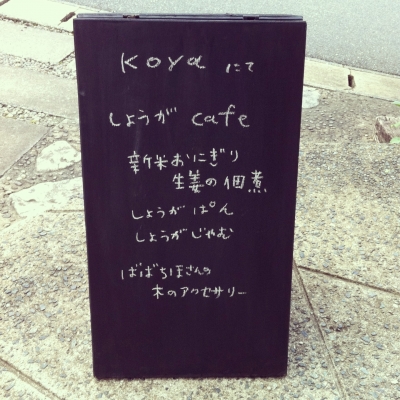 Koya にて
しょうが cafe
新米おにぎり
生姜の佃煮
しょうが ぱん
しょうがじゃむ
ばばちほさんの
木のアクセサリー